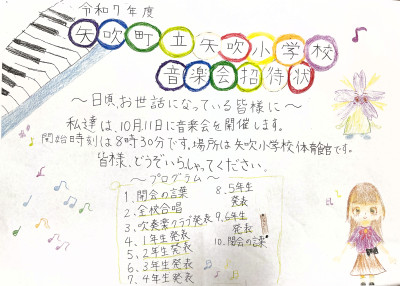 令和7年度
矢吹町立矢吹小学校
音楽会招待状
〜日頃、お世話になっている皆様に〜
私達は、10月11日に音楽会を開催します。
開始時刻は8時30分です。場所は矢吹小学校体育館です。
皆様、どうぞいらしゃってください。
〜プログラム〜
1、開会の言葉
2、全校合唱
3、吹奏楽クラブ発表
4、1年生発表
5、2年生発表
6、3年生発表
7、4年生発表
8、5年生
発表
9、6年生
発表
10、閉会の言葉